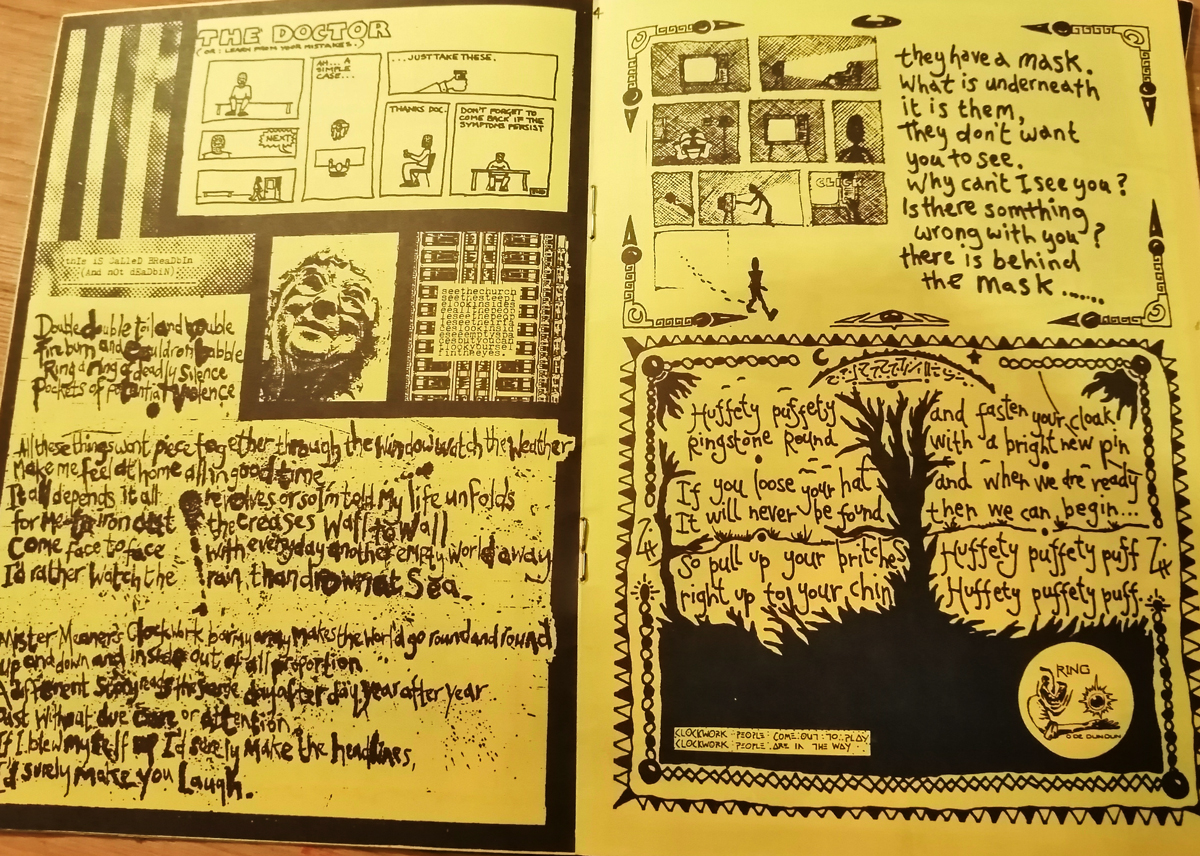 THE DOCTOR
(OR: LEARN FROM YOUR MISTAKES.)
NEXT!
AH... A
SIMPLE
CASE...
...JUST TAKE THESE.
THANKS DOC.
DON'T FORGET TO
COME BACK IF THE
SYMPTOMS PERSIST
thIs iS CaLleD BReaDbIn
(And nOt dEaDbiN)
seethechurch
seethesteepl
Double double toil and trouble
Fire burn and cauldron bubble
Ring a ring of deadly silence
Pockets of potential violence
All these things want piece together through the window watch the weather
Make me feel at home all in good time
It all depends it all revolves or so I'm told My life unfolds
for me to iron out the creases Wall to Wall
Come face to face with everyday another empty world away
I'd rather watch the rain than drown at Sea.
Mister Manner's Clockwork barmy army makes the world go round and round
up and down and inside out of all proportion
A different story reads the same day after day, year after year
past without due care or attention
If I blew myself up I'd surely make the headlines,
I'd surely make you Laugh.
4
CLICK
they have a mask.
What is underneath
it is them,
They don't want
you to see.
Why can't I see you?
Is there somthing
wrong with you?
there is behind
the mask......
Huffety puffety
Ringstone Round
If you loose your hat
It will never be found
So pull up your britches
right up to your chin
and fasten your cloak
with a bright new pin
and when we are ready
then we can begin...
Huffety puffety puff
Huffety puffety puff..
RING
O DE DUNDUN
CLOCKWORK PEOPLE COME OUT TO PLAY
CLOCKWORK PEOPLE ARE IN THE WAY